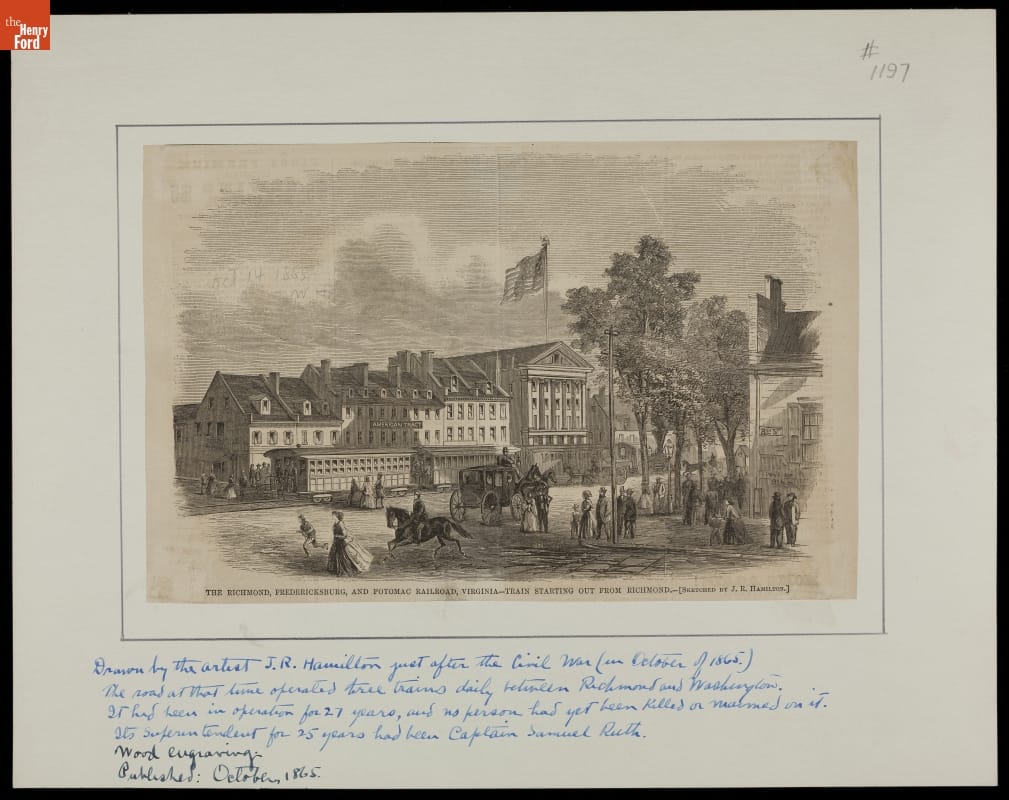 the
Henry
Ford
#
1197
Oct 14 1865
AMERICAN TRACT
THE RICHMOND, FREDERICKSBURG, AND POTOMAC RAILROAD, VIRGINIA—TRAIN STARTING OUT FROM RICHMOND.—[SKETCHED BY J. R. HAMILTON.]
Drawn by the artist J.R. Hamilton just after the Civil War (in October of 1865.)
The road at that time operated three trains daily between Richmond and Washington.
It had been in operation for 27 years, and no person had yet been killed or maimed on it.
Its Superintendent for 25 years had been Captain Samuel Ruth.
Wood engraving.
Published: October, 1865.